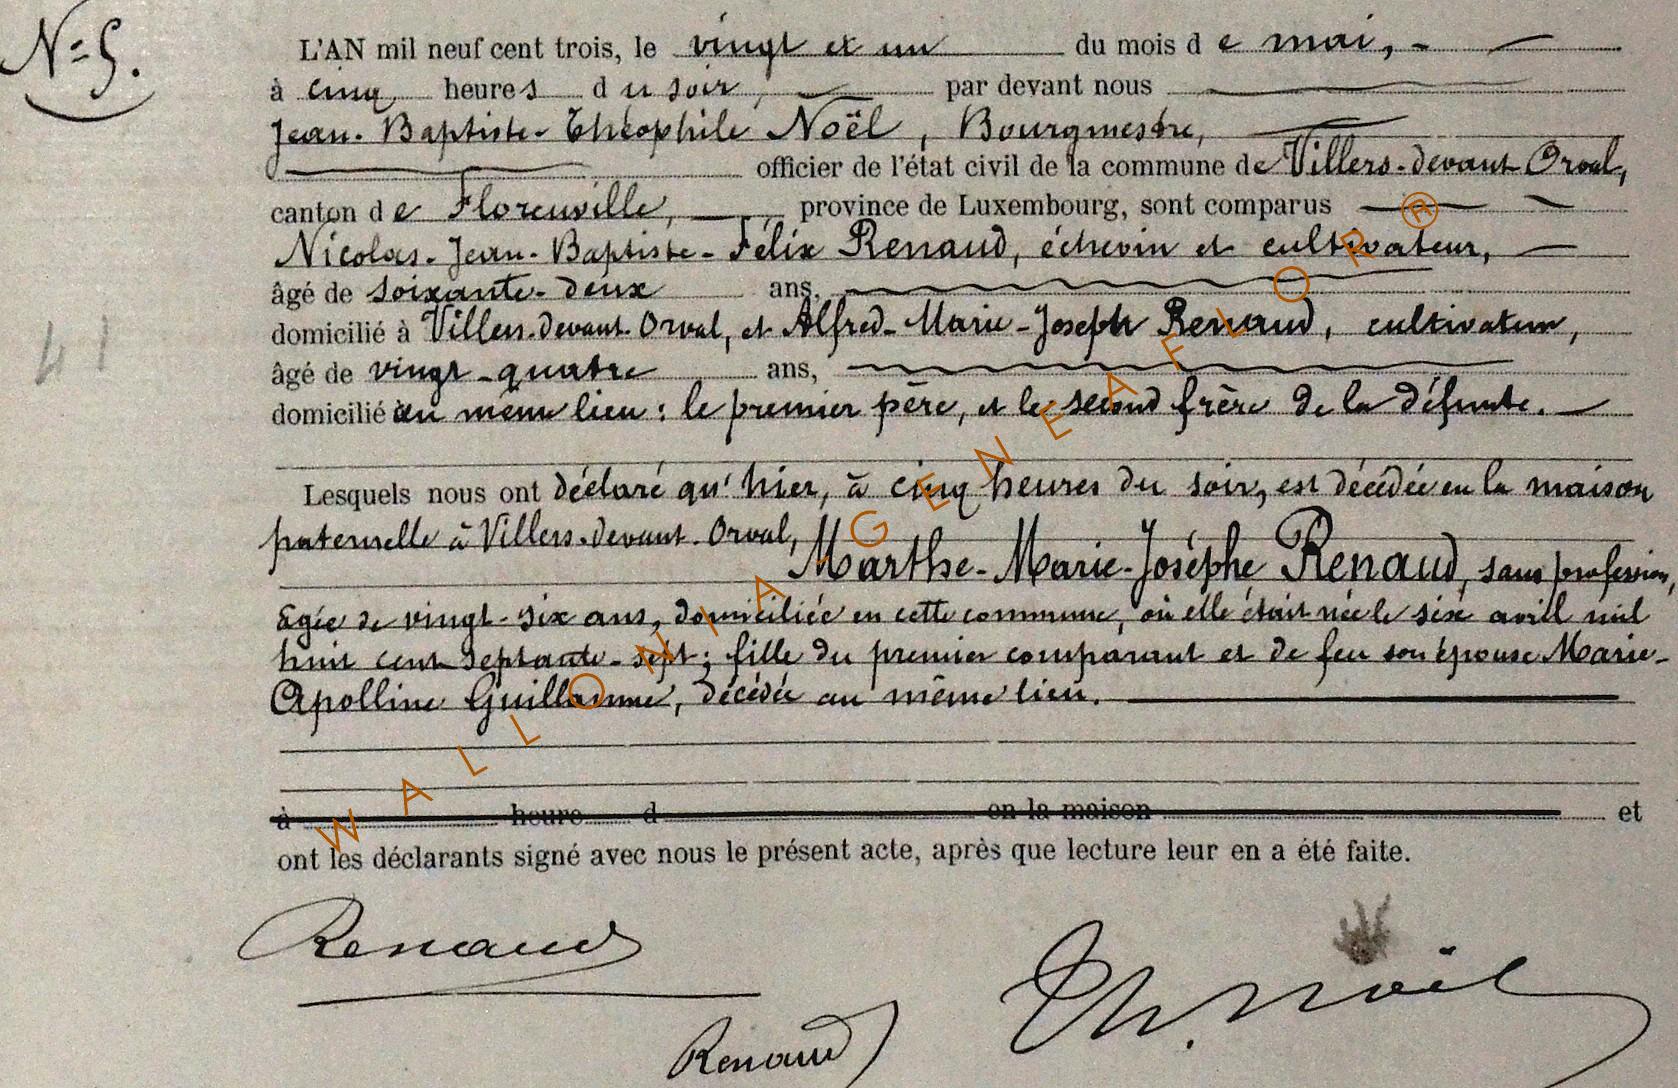 N=5.
L'AN mil neuf cent trois, le vingt et un du mois de mai,
à cinq heures du soir, par devant nous
Jean-Baptiste-Théophile Noël, Bourgmestre,
officier de l'état civil de la commune de Villers-devant Orval,
canton de Florenville, province de Luxembourg, sont comparus
Nicolas-Jean-Baptiste-Félix Renaud, échevin et cultivateur,
âgé de soixante-deux ans,
domicilié à Villers-devant-Orval, et Alfred-Marie-Joseph Renaud, cultivateur,
âgé de vingt-quatre ans,
domicilié au même lieu : le premier père, et le second frère de la défunte.
Lesquels nous ont déclaré qu'hier, à cinq heures du soir, est décédée en la maison
paternelle à Villers-devant-Orval,
Marthe-Marie-Joséphe Renaud, sans profession,
âgée de vingt-six ans, domiciliée en cette commune, où elle était née le six avril mil
huit cent septante-sept ; fille du premier comparant et de feu son épouse Marie-
Apolline Guillaume, décédée au même lieu.
à heure d en la maison et
ont les déclarants signé avec nous le présent acte, après que lecture leur en a été faite.
Renaud
Th. Noël
Renaud
41
WALLONIA GENEAFLOR®